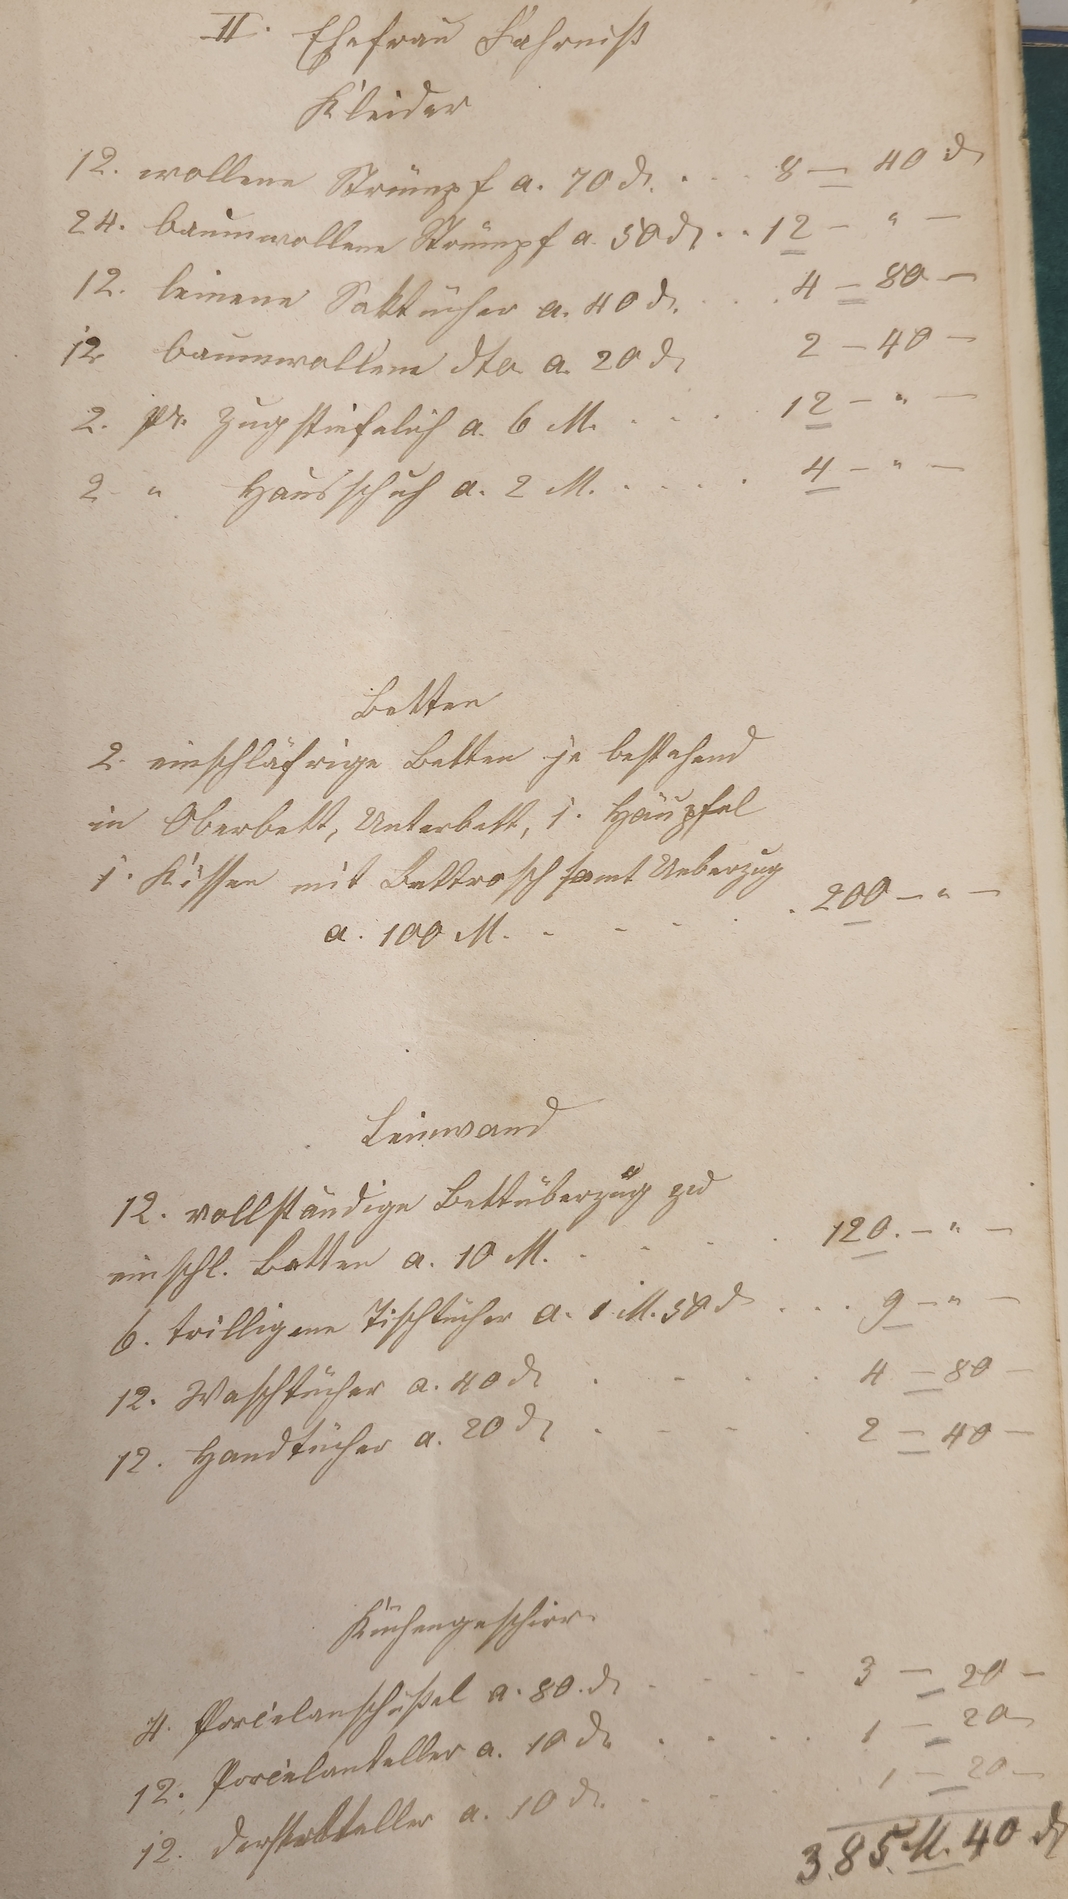 II. Ehefrau Fahrniß
Kleider
12. wollene Strümpf a. 70 ₰. . . . 8 — 40 ₰
24. baumwollene Strümpf a. 50 ₰ . . 12 — " —
12. leinene Saktücher a. 40 ₰. . . . 4 — 80 —
12 baumwollene dto a. 20 ₰ 2 — 40 —
2. pr. Zugstiefelich a. 6 M. . . . . 12 — " —
2 " Hausschuh a. 2 M. . . . . 4 — " —
Betten
2. einschläfrige Betten je bestehend
in Oberbett, Unterbett, 1. Häupfel
1. Kissen mit Bettrosch samt Ueberzug
a. 100 M. - - - - . 200 — " —
Leinwand
12. vollständige Bettüberzüg zu
einschl. Betten a. 10 M. - - - . 120. — " —
6. trilligene Tischtücher a. 1 M. 50 ₰ . . . 9 — " —
12. Waschtücher a. 40 ₰ . - - . 4 — 80 —
12. Handtücher a. 20 ₰ . - - . 2 — 40 —
Küchengeschirr.
4. Porcelanschüßel a. 80. ₰ . - - - 3 — 20 —
12. Porcelanteller a. 10 ₰. . . . . 1 — 20 —
12. a. 10 ₰. - - 1 — 20 —
385 M. 40 ₰